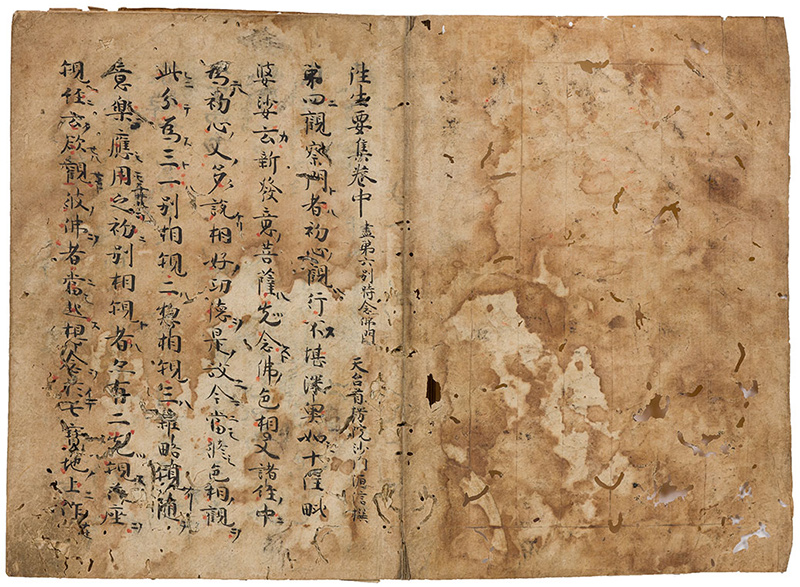 往生要集卷中 盡第六別時念佛門 天台首楞院沙門源信撰
第四觀察門者初心觀行不堪深奧如十住毗
婆沙云新發意菩薩先念佛色相又諸經中
為初心人多說相好功德是故今當修色相觀
此分為三一別相觀二惣相觀三雜略觀隨
意樂應用之初別相觀者亦有二先相花座
觀經云欲觀彼佛者當起想念於七寶地上作